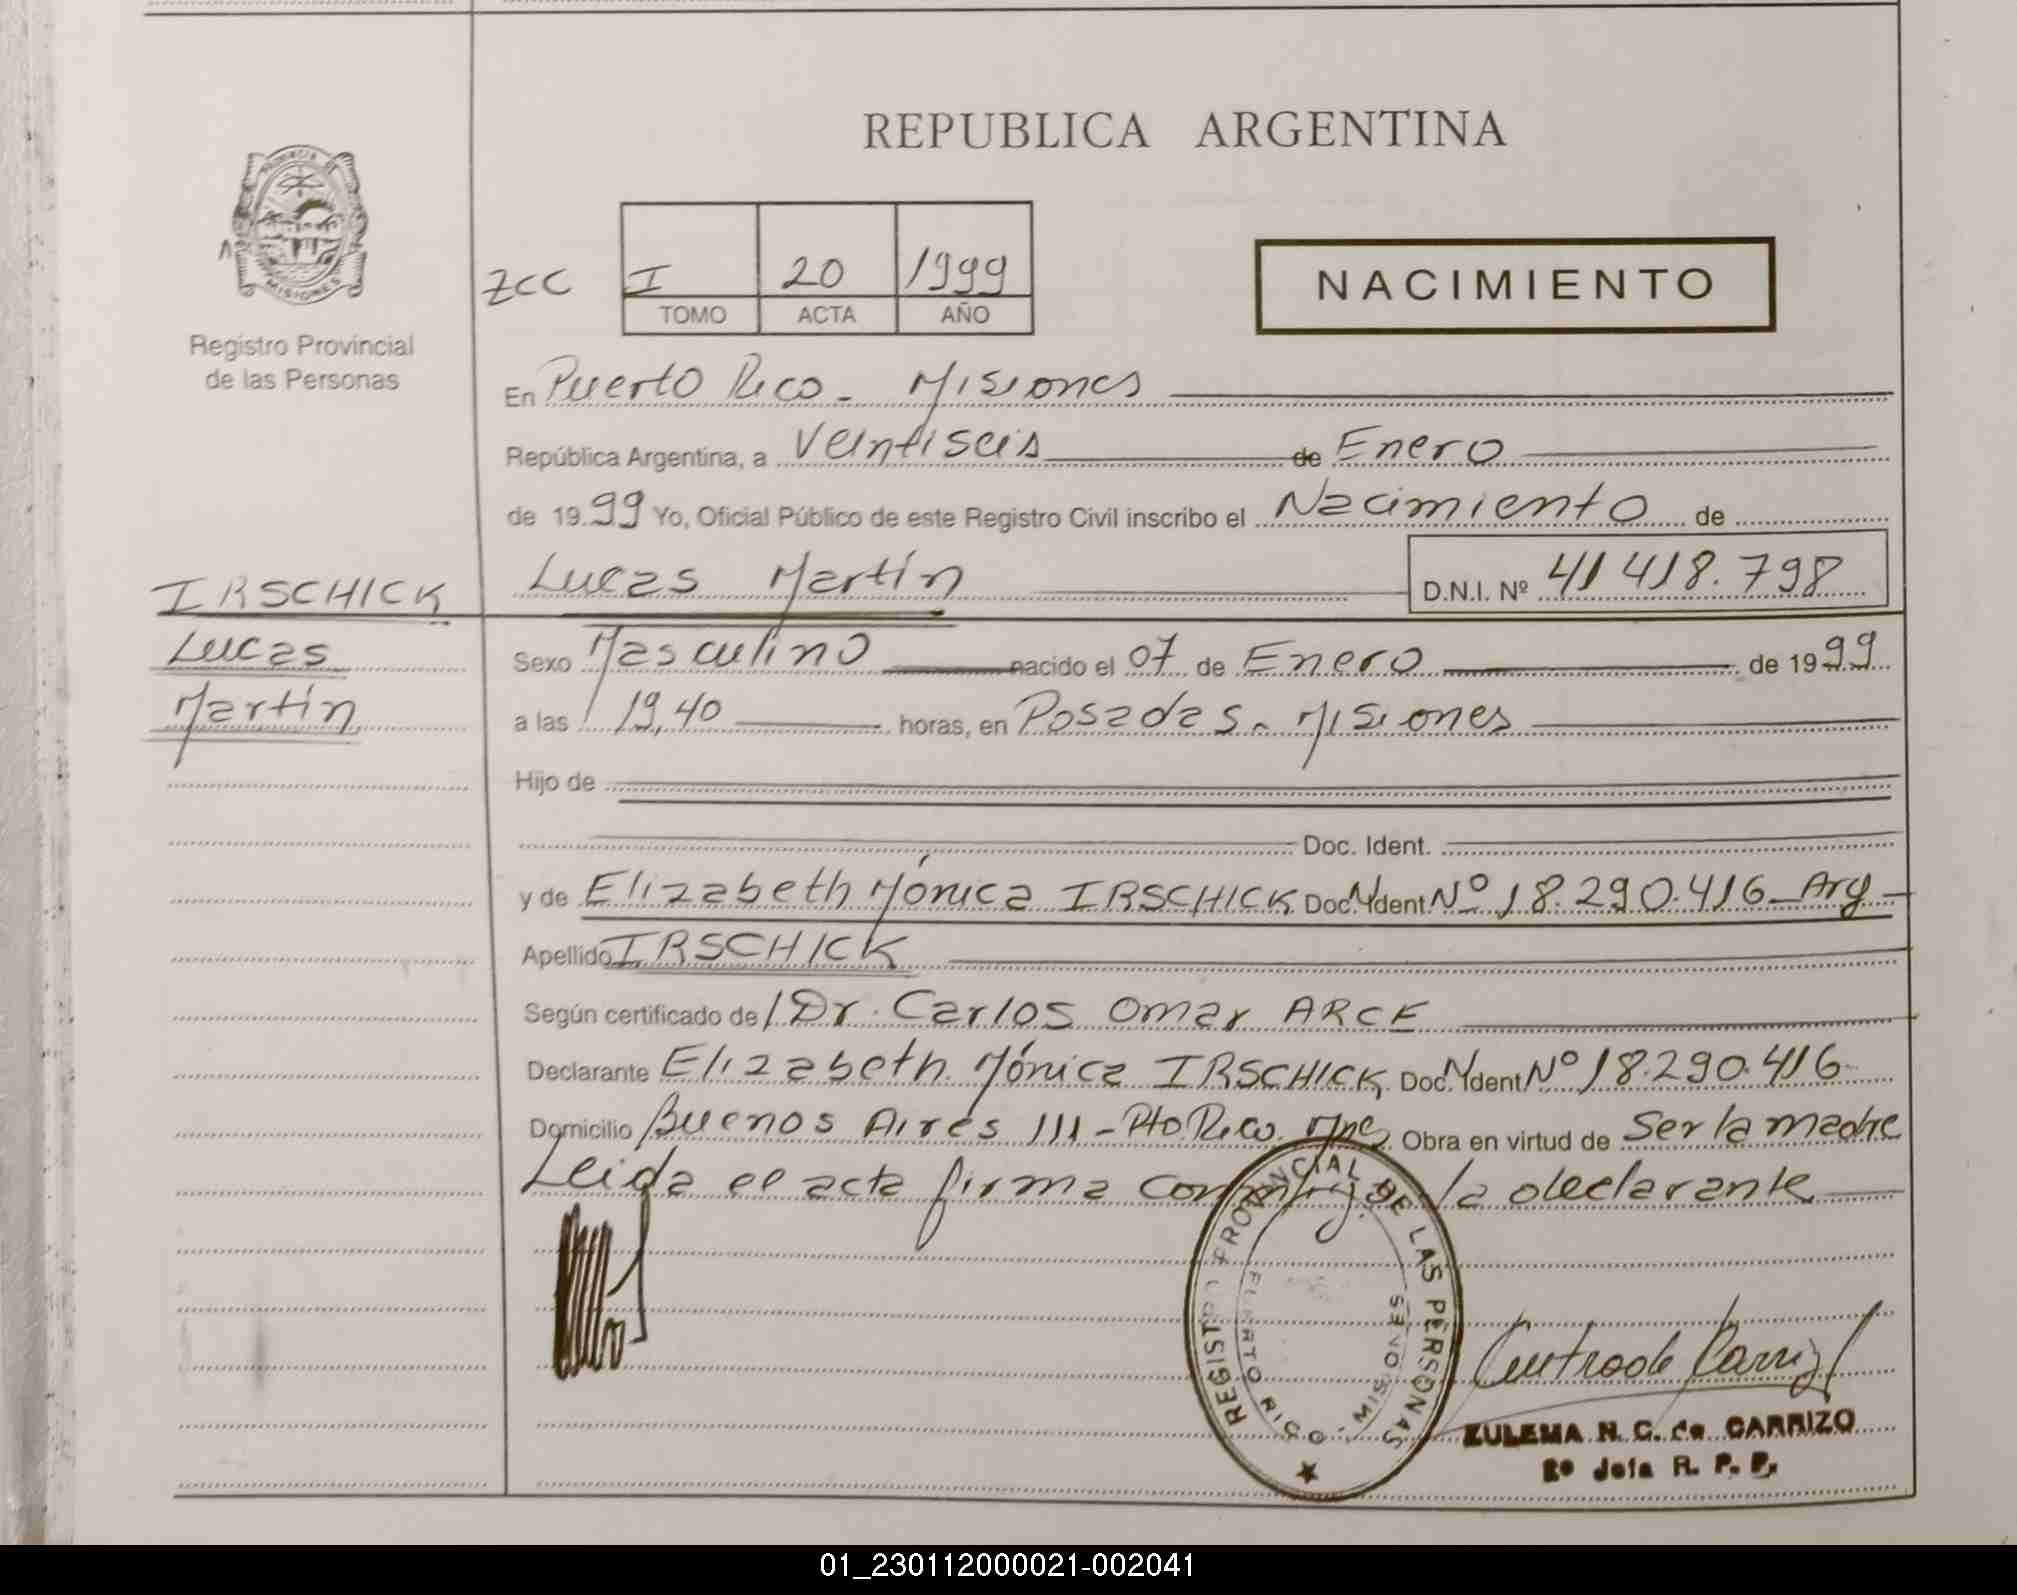 REPUBLICA ARGENTINA
PROVINCIA DE
MISIONES
Registro Provincial
de las Personas
ZCC
I 20 1999
TOMO ACTA AÑO
NACIMIENTO
En Puerto Rico - Misiones
República Argentina, a Veintiseis de Enero
de 1999 Yo, Oficial Público de este Registro Civil inscribo el Nacimiento de
Lucas Martín D.N.I. Nº 41 418.798
IRSCHICK
Lucas
Martín
Sexo Masculino nacido el 07 de Enero de 1999
a las 19,40 horas, en Posadas - Misiones
Hijo de
Doc. Ident.
y de Elizabeth Mónica IRSCHICK Doc. Ident Nº 18.290.416 - Arg
Apellido IRSCHICK
Según certificado de Dr. Carlos Omar ARCE
Declarante Elizabeth Mónica IRSCHICK Doc. Ident Nº 18.290.416
Domicilio Buenos Aires 111 - Pto. Rico. Mnes Obra en virtud de Ser la madre
Leida el acta firma conmigo la declarante
REGISTRO PROVINCIAL DE LAS PERSONAS
PUERTO RICO - MISIONES
ZULEMA N. C. de CARRIZO
2º Jefa R. P. P.
01_230112000021-002041